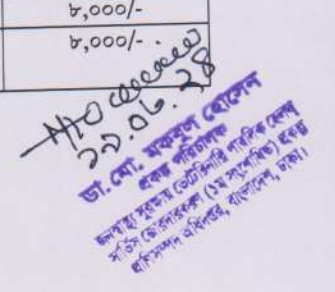 ৮,০০০/-
৮,০০০/-
২৯.০৮.২৪
ডা. মো. মকবুল হোসেন
প্রকল্প পরিচালক
জনস্বাস্থ্য সুরক্ষায় ভেটেরিনারি পাবলিক হেলথ
সার্ভিস জোরদারকরণ (১ম সংশোধিত) প্রকল্প
প্রাণিসম্পদ অধিদপ্তর, বাংলাদেশ, ঢাকা।